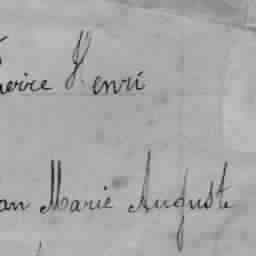 Pierre Henri
an Marie Auguste